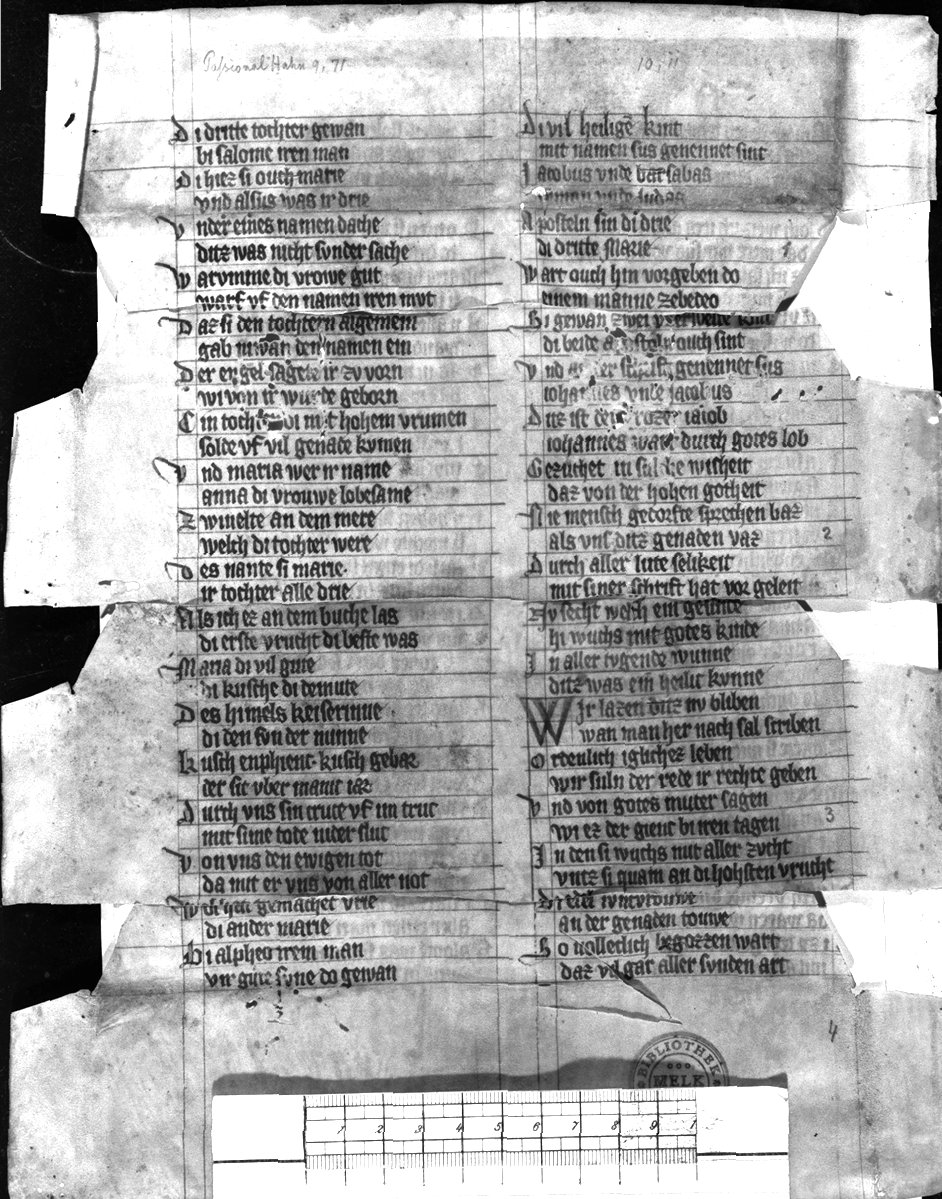 Passional Hahn 9, 71
10, 11
Di dritte tochter gewan
bi salome iren man
Di hiez si ouch marie
vnd alsus was ir drie
Vnder eines namen dache
ditz was nicht sunder sache
Warvmme di vrowe gut
warf vf den namen iren mvt
Daz si den tochtern algemein
gab den namen ein
Der engel sagete ir zv vorn
wi von ir wurde geborn
Ein tocht di mit hohem vrumen
solde vf vil genade kvmen
Vnd maria wer ir name
anna di vrouwe lobesame
Zwiuelte an dem mere
welch di tochter were
Des nante si marie
ir tochter alle drie
Als ich ez an dem buche las
di erste vrucht di beste was
Maria di vil gute
di kusche di demute
Des himels keiserinne
di den svnder minne
kusch enphienc kusch gebar
der sic vber manic iar
Durch vns sin cruce vf im truc
mit sime tode nider sluc
Von vns den ewigen tot
da mit er vns von aller not
gemachet vrie
di ander marie
Bi alpheo irem man
vir gute svne do gewan
Di vil heilige kint
mit namen sus genennet sint
Jacobus vnde barsabas
symon vnde iudas
Aposteln sin di drie
di dritte Marie
Wart ouch hin vorgeben do
einem manne zebedeo
Bi gewan zwei kint
di beide ouch sint
Vnd genennet sus
iohannes vnde jacobus
Ditz ist der iacob
iohannes wart durch gotes lob
Gezuchet in sulche wisheit
daz von der hohen gotheit
Nie mensch gedorfte sprechen baz
als vns ditz genaden vaz
Durch aller lute selikeit
mit siner schrift hat vor geleit
Zv secht welch ein gesinde
hi wuchs mit gotes kinde
In aller tvgende wunne
ditz was ein heilic kvnne
Wir lazen ditz nv bliben
wan man her nach sal scriben
Ordenlich iglichez leben
wir suln der rede ir rechte geben
Vnd von gotes muter sagen
wi ez der gienc bi iren tagen
In den si wuchs mit aller zvcht
vntz si quam an di hohsten vrucht
Di edele ivncvrouwe
an der genaden touwe
So vollecliсh begozzen wart
daz vil gar aller sunden art
1
2
3
4
3
BIBLIOTHEK
MELK
1 2 3 4 5 6 7 8 9 1